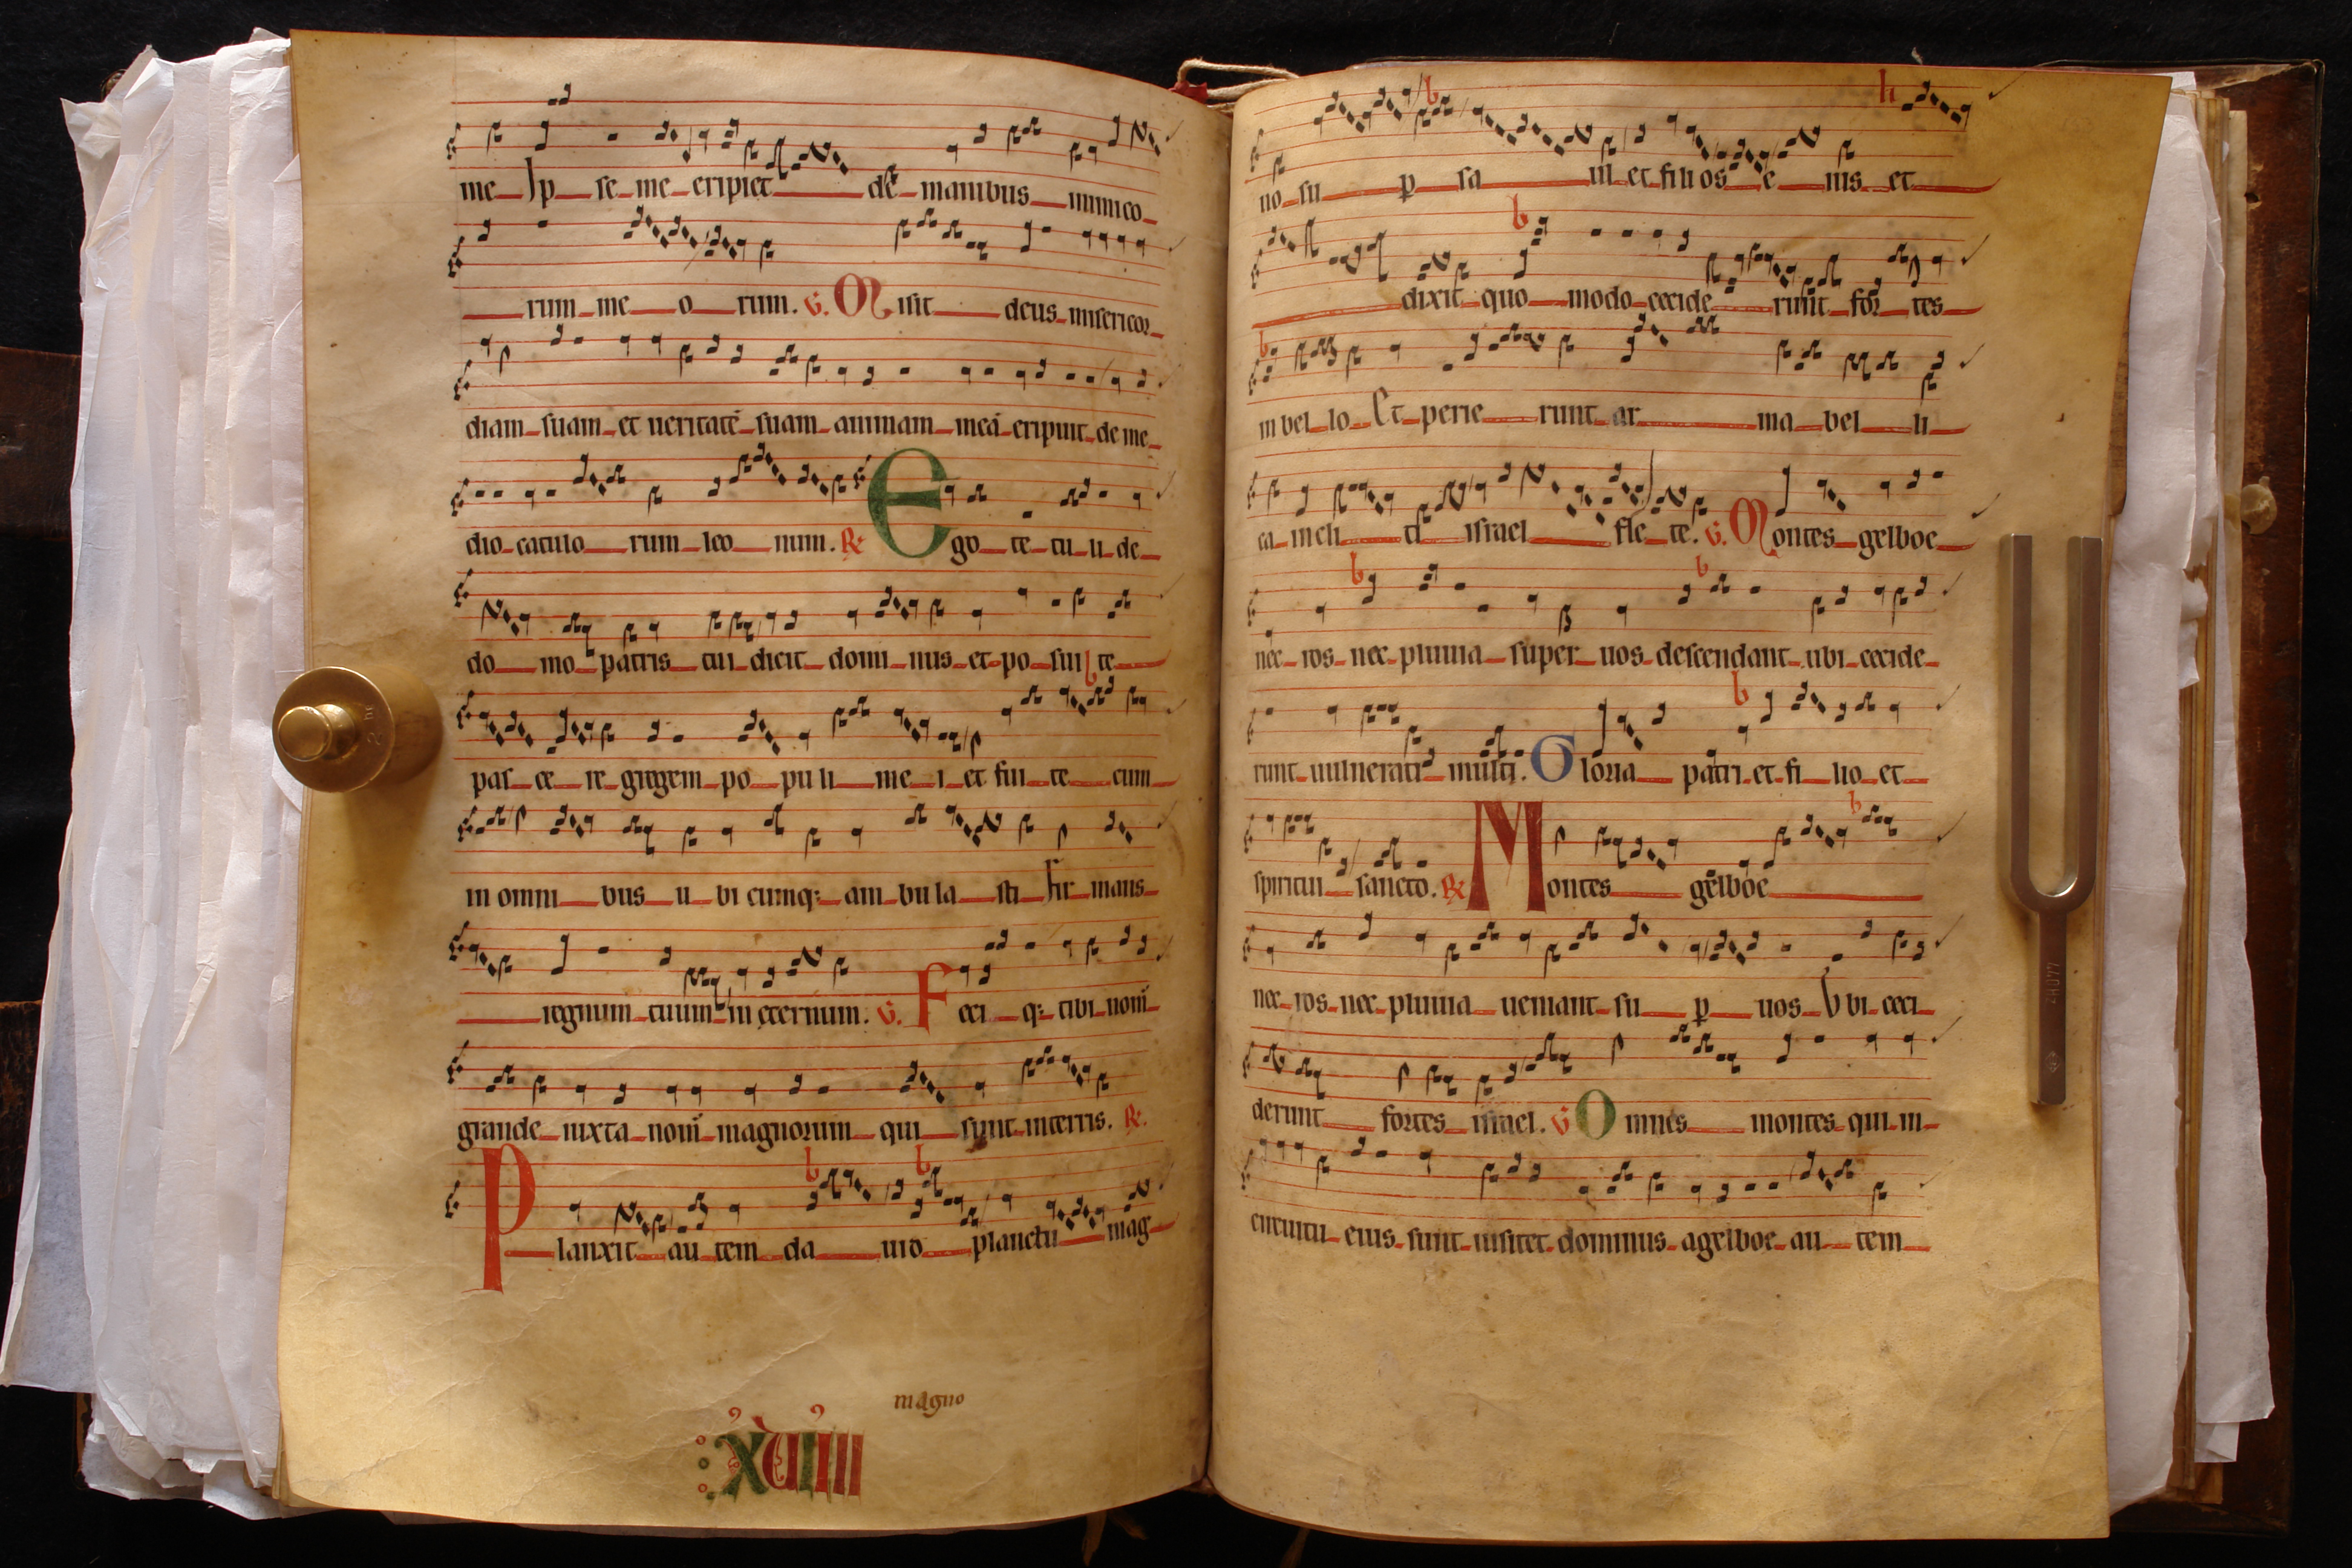 me Ip se me eripiet de manibus inimico
rum me o rum. V. Misit deus misericor
diam suam et ueritatē suam animam meā eripuit de me
dio catulo rum leo num. R Ego te tu li de
do mo patris tui dicit domi nus et po sui te
pas ce re gregem po pu li me i et fui te cum
in omni bus u bi cumq; am bu la sti Fir mans
regnum tuum in eternum. V. Feci q; tibi nom̄
grande iuxta nom̄ magnorum qui sunt in terris. R.
Planxit au tem da uid planctu mag
magno
xviiii
no su p sa ul et fili os e ius et
dixit quo modo cecide runt for tes
in bel lo Et perie runt ar ma bel li
ca in eli tI israel fle te. V. Montes gelboe
nec ros nec pluuia super uos descendant ubi cecide
runt uulnerati multi. Gloria patri et fi lio et
spiritui sancto. R Montes gelboe
nec ros nec pluuia ueniant su p uos Vbi ceci
derunt fortes israel. V Omnes montes qui in
circuitu eius sunt uisitet dominus a gelboe au tem
2 hg
440Hz